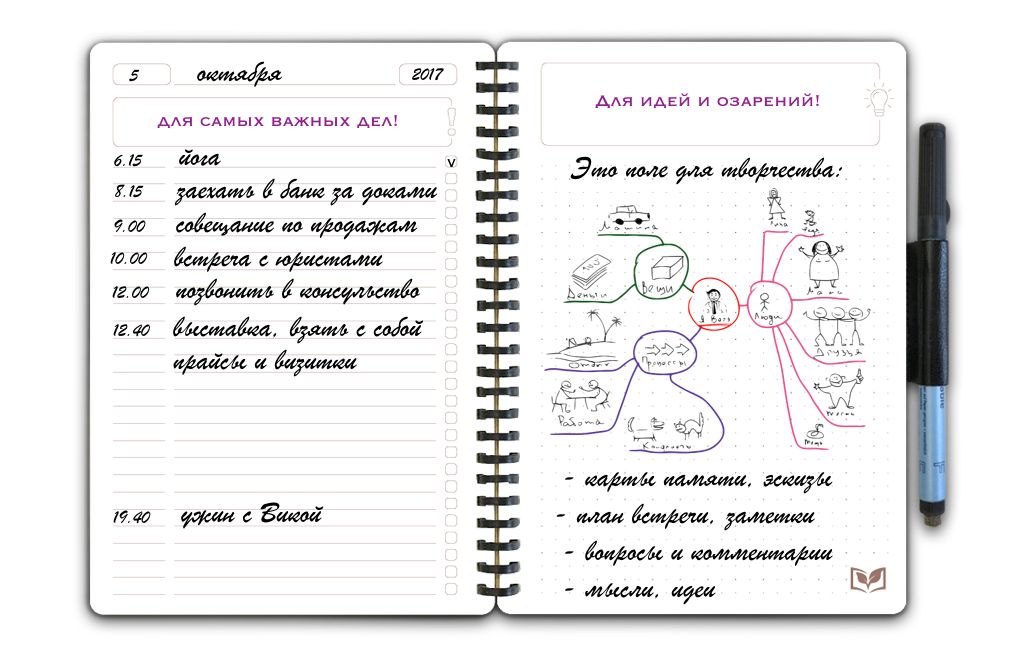 5 октября 2017
ДЛЯ САМЫХ ВАЖНЫХ ДЕЛ!
6.15 йога v
8.15 заехать в банк за доками
9.00 совещание по продажам
10.00 встреча с юристами
12.00 позвонить в консульство
12.40 выставка, взять с собой
прайсы и визитки
19.40 ужин с Викой
Для идей и озарений!
Это поле для творчества:
Машина
Деньги
Вещи
Я
Люди
Мама
Друзья
Процессы
Отдых
Работа
Конфликты
- карты памяти, эскизы
- план встречи, заметки
- вопросы и комментарии
- мысли, идеи